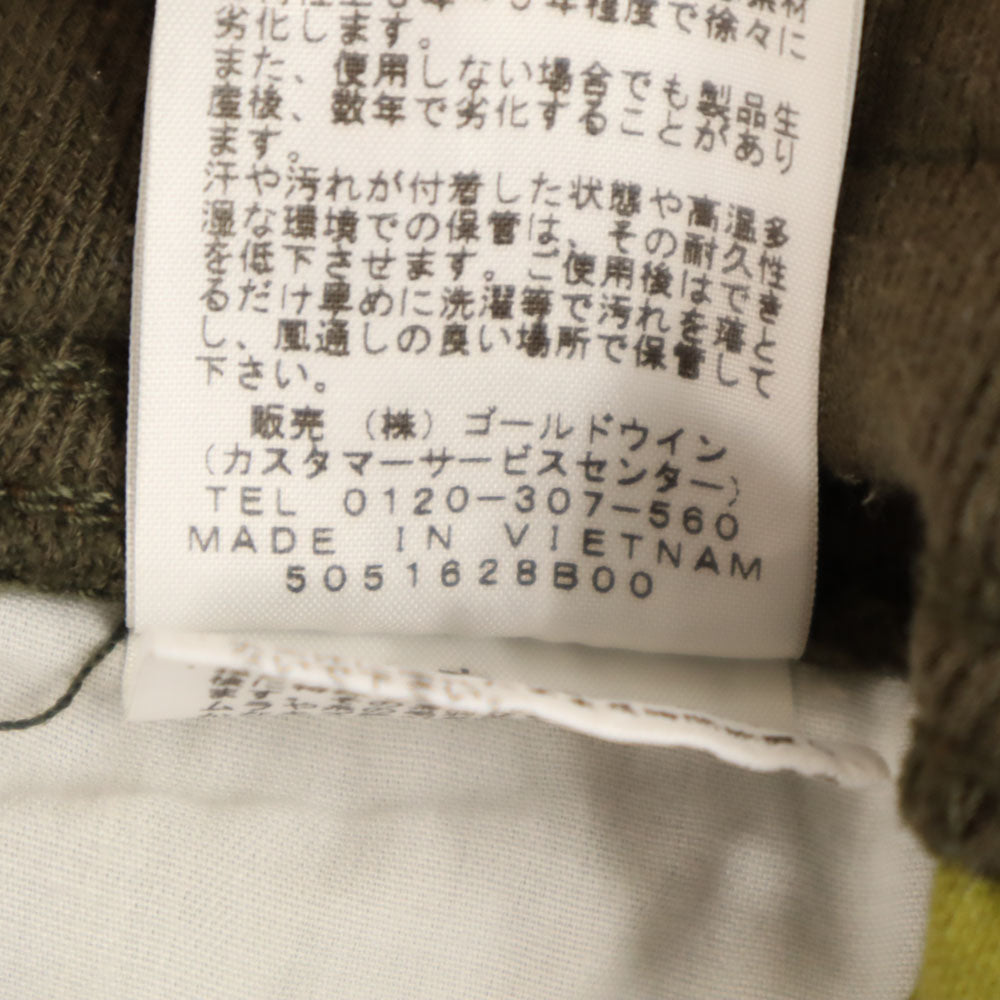 年程度で徐々に
劣化します。
また、使用しない場合でも製品生
産後、数年で劣化することがあり
ます。
汗や汚れが付着した状態や高温多
湿な環境での保管は、その耐久性
を低下させます。ご使用後はできる
だけ早めに洗濯等で汚れを落と
し、風通しの良い場所で保管して
下さい。
販売 (株)ゴールドウイン
(カスタマーサービスセンター)
TEL 0120-307-560
MADE IN VIETNAM
5051628B00